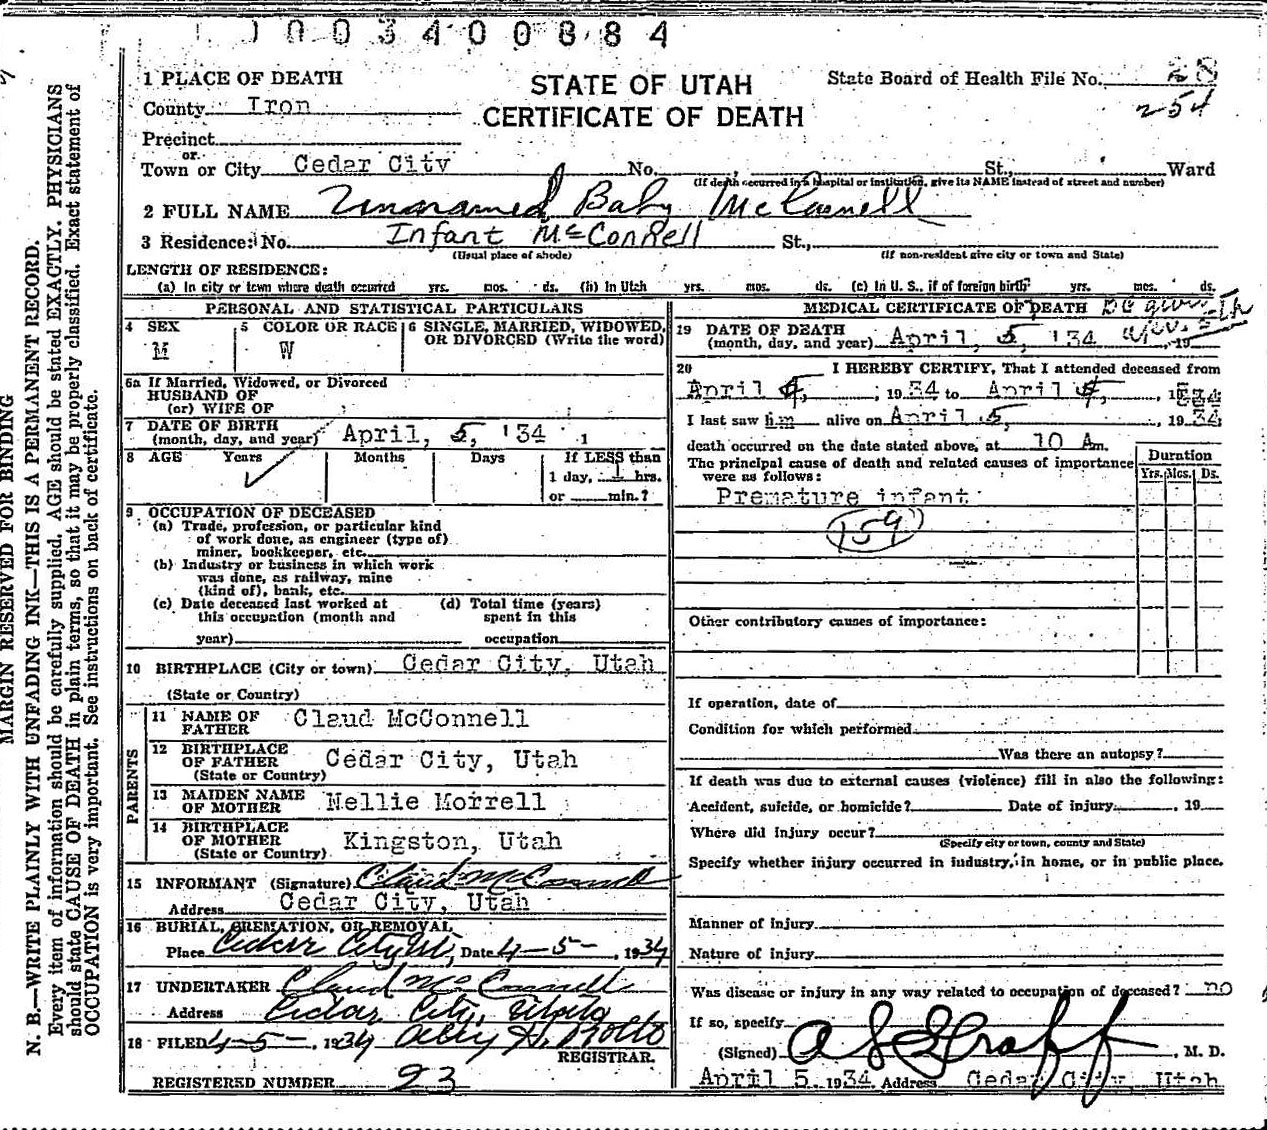 1003400884
1 PLACE OF DEATH
STATE OF UTAH
CERTIFICATE OF DEATH
State Board of Health File No. 28
254
County Iron
Precinct
or
Town or City Cedar City No. St., Ward
(If death occurred in a hospital or institution, give its NAME instead of street and number)
2 FULL NAME Unnamed Baby McConnell
3 Residence: No. Infant McConnell St.,
(Usual place of abode) (If non-resident give city or town and State)
LENGTH OF RESIDENCE:
(a) In city or town where death occurred yrs. mos. ds. (b) In Utah yrs. mos. ds. (c) In U. S., if of foreign birth yrs. mos. ds.
PERSONAL AND STATISTICAL PARTICULARS
4 SEX M
5 COLOR OR RACE W
6 SINGLE, MARRIED, WIDOWED, OR DIVORCED (Write the word)
6a If Married, Widowed, or Divorced
HUSBAND OF
(or) WIFE OF
7 DATE OF BIRTH
(month, day, and year) April, 5, '34
8 AGE Years Months Days If LESS than
1 day, 1 hrs.
or min.?
9 OCCUPATION OF DECEASED
(a) Trade, profession, or particular kind
of work done, as engineer (type of)
miner, bookkeeper, etc.
(b) Industry or business in which work
was done, as railway, mine
(kind of), bank, etc.
(c) Date deceased last worked at
this occupation (month and
year)
(d) Total time (years)
spent in this
occupation
10 BIRTHPLACE (City or town) Cedar City, Utah
(State or Country)
PARENTS
11 NAME OF
FATHER Claud McConnell
12 BIRTHPLACE
OF FATHER Cedar City, Utah
(State or Country)
13 MAIDEN NAME
OF MOTHER Nellie Morrell
14 BIRTHPLACE
OF MOTHER Kingston, Utah
(State or Country)
15 INFORMANT (Signature) Claud McConnell
Address Cedar City, Utah
16 BURIAL, CREMATION, OR REMOVAL
Place Cedar City Ut, Date 4-5-, 1934
17 UNDERTAKER Claud McConnell
Address Cedar City, Utah
18 FILED 4-5-, 1934
REGISTRAR.
REGISTERED NUMBER 23
MEDICAL CERTIFICATE OF DEATH
19 DATE OF DEATH
(month, day, and year) April, 5, '34 , 19
20 I HEREBY CERTIFY, That I attended deceased from
April , 1934 to April , 1934
I last saw him alive on April 5, 1934
death occurred on the date stated above, at 10 Am.
The principal cause of death and related causes of importance
were as follows:
Duration
Yrs. Mos. Ds.
Premature infant
159
Other contributory causes of importance:
If operation, date of
Condition for which performed
Was there an autopsy?
If death was due to external causes (violence) fill in also the following:
Accident, suicide, or homicide? Date of injury , 19
Where did injury occur?
(Specify city or town, county and State)
Specify whether injury occurred in industry, in home, or in public place.
Manner of injury
Nature of injury
Was disease or injury in any way related to occupation of deceased? no
If so, specify
(Signed) , M. D.
April 5, 1934 Address Cedar City, Utah
MARGIN RESERVED FOR BINDING
N. B.—WRITE PLAINLY WITH UNFADING INK—THIS IS A PERMANENT RECORD.
Every item of information should be carefully supplied. AGE should be stated EXACTLY. PHYSICIANS
should state CAUSE OF DEATH in plain terms, so that it may be properly classified. Exact statement of
OCCUPATION is very important. See instructions on back of certificate.